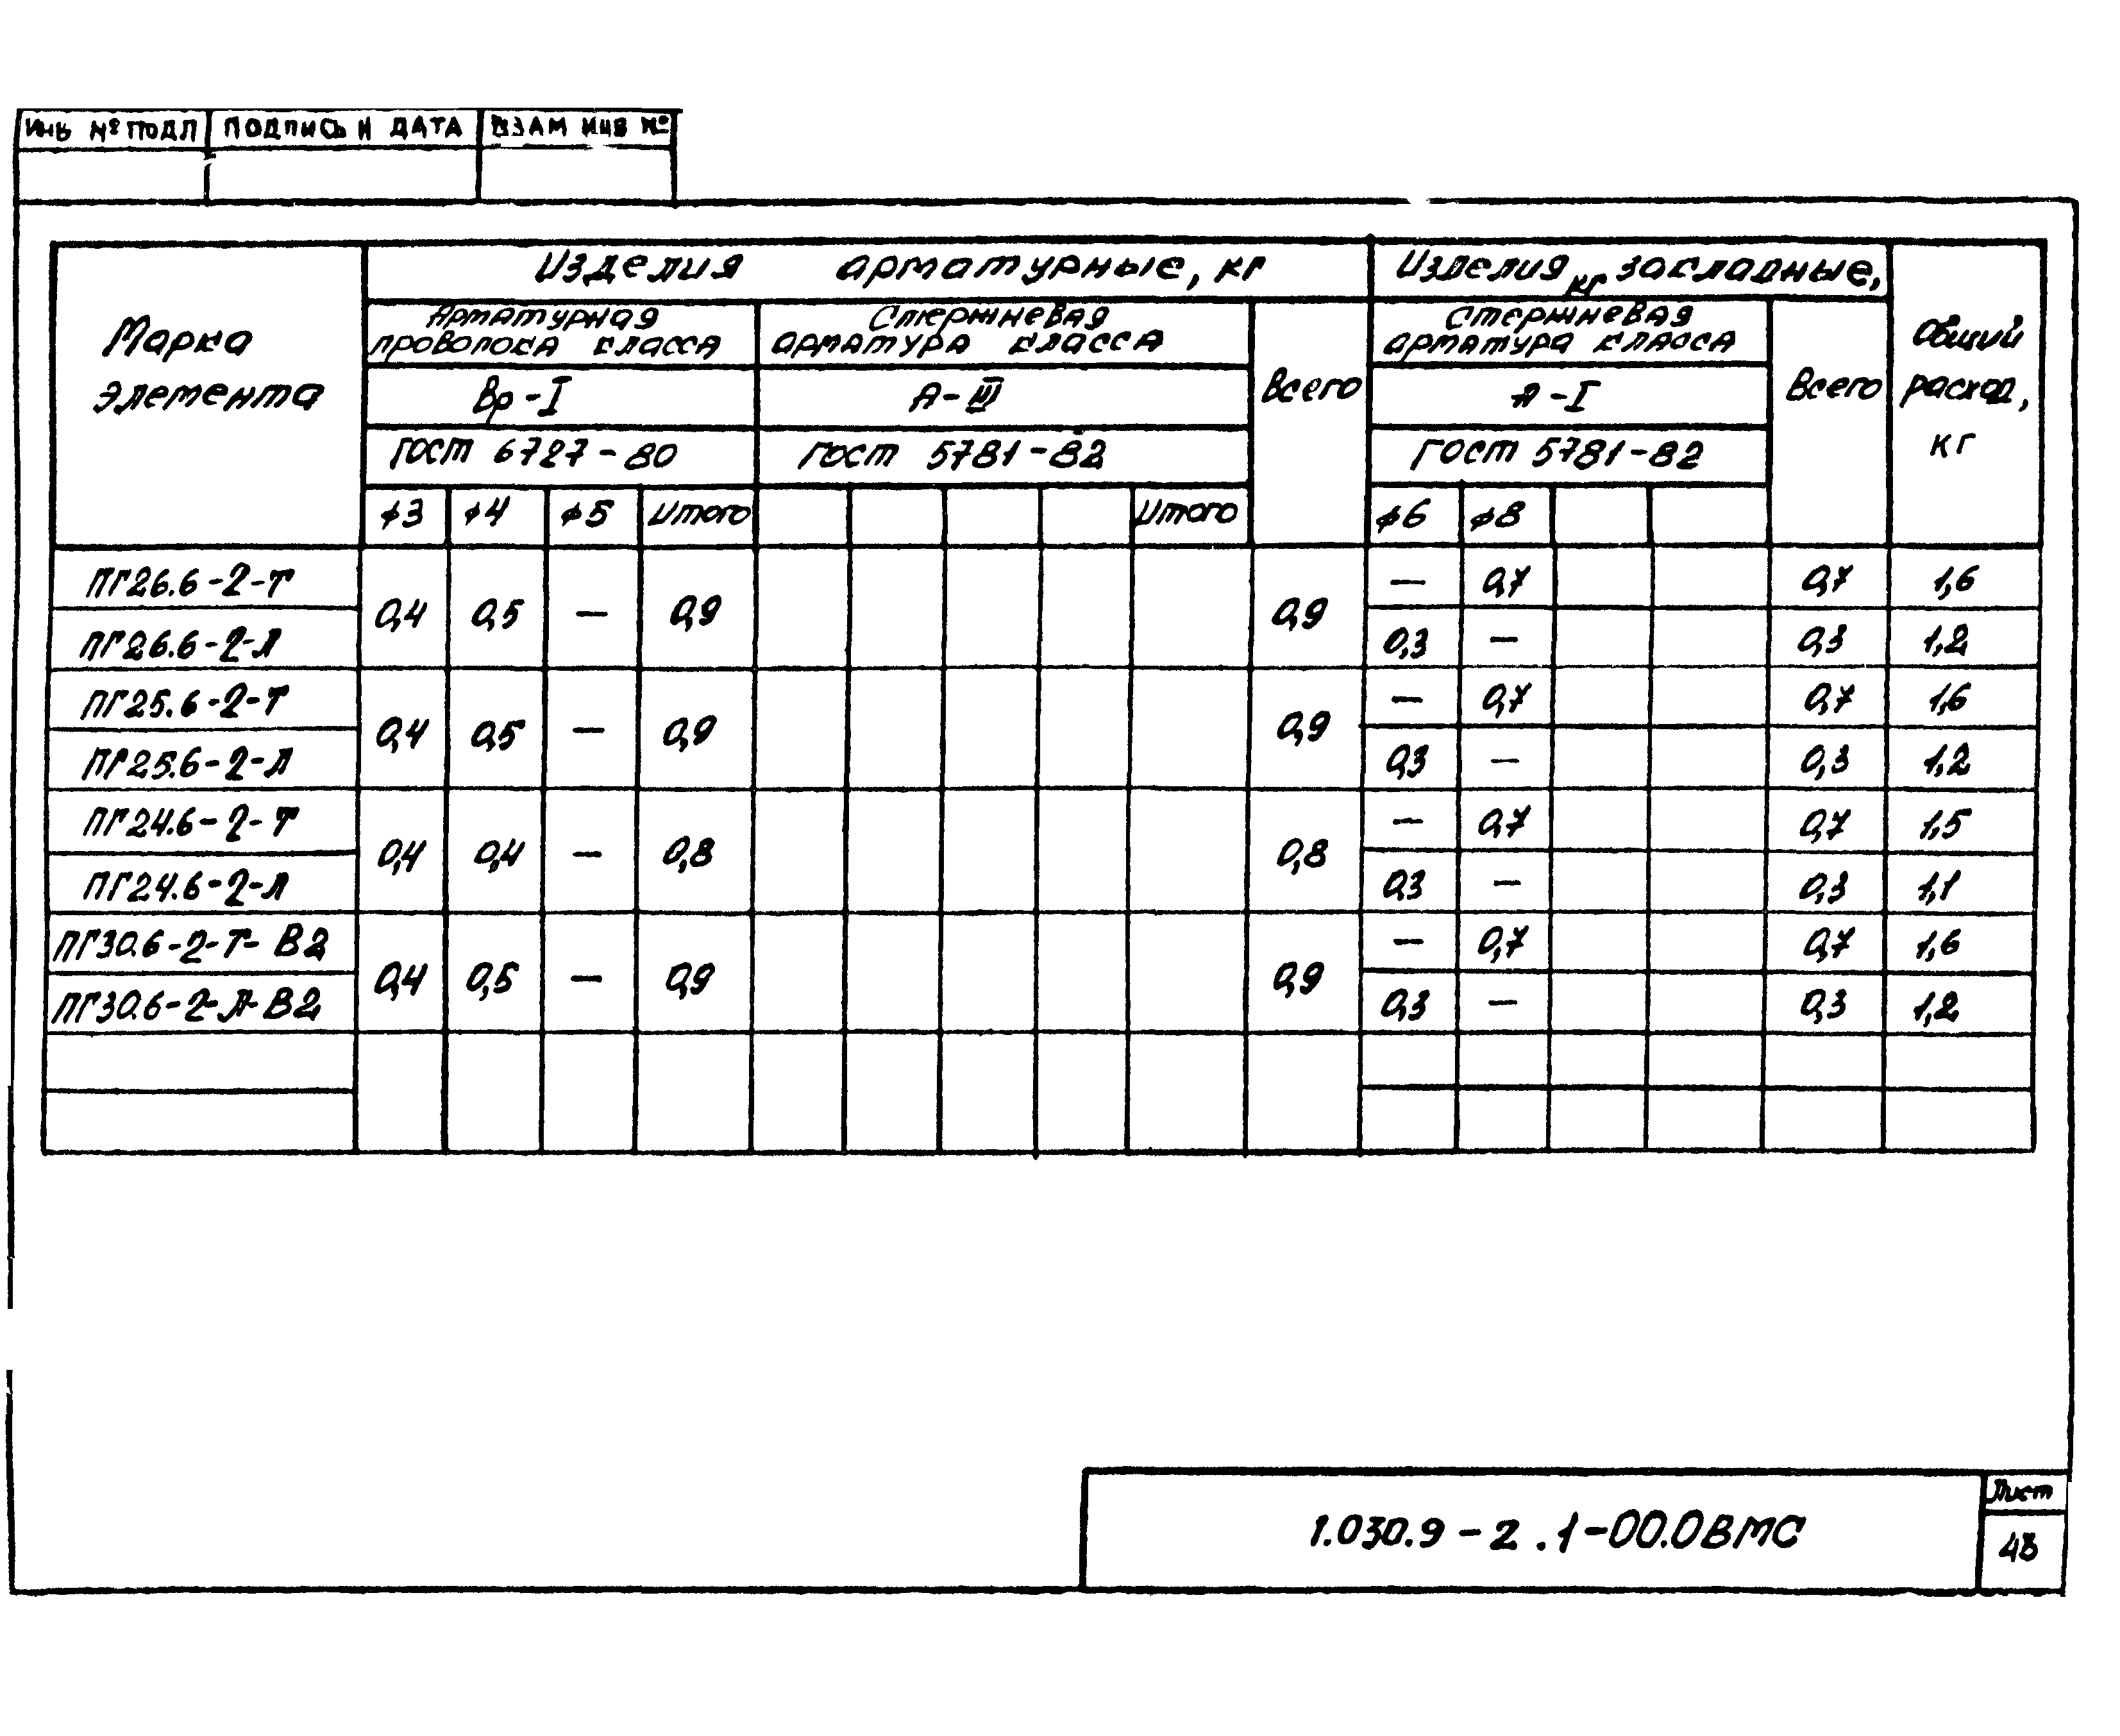 Инв № подл Подпись и дата Взам инв №
Изделия арматурные, кг Изделия закладные, кг
Марка элемента
Арматурная проволока класса
Стержневая арматура класса
Всего
Стержневая арматура класса
Всего
Общий расход, кг
Вр-I А-III А-I
ГОСТ 6727-80 ГОСТ 5781-82 ГОСТ 5781-82
ϕ3 ϕ4 ϕ5 Итого Итого ϕ6 ϕ8
ПГ26.6-2-Т 0,4 0,5 — 0,9 0,9 — 0,7 0,7 1,6
ПГ26.6-2-Л 0,3 — 0,3 1,2
ПГ25.6-2-Т 0,4 0,5 — 0,9 0,9 — 0,7 0,7 1,6
ПГ25.6-2-Л 0,3 — 0,3 1,2
ПГ24.6-2-Т 0,4 0,4 — 0,8 0,8 — 0,7 0,7 1,5
ПГ24.6-2-Л 0,3 — 0,3 1,1
ПГ30.6-2-Т-В2 0,4 0,5 — 0,9 0,9 — 0,7 0,7 1,6
ПГ30.6-2-Л-В2 0,3 — 0,3 1,2
1.030.9-2.1-00.0ВМС
Лист
48